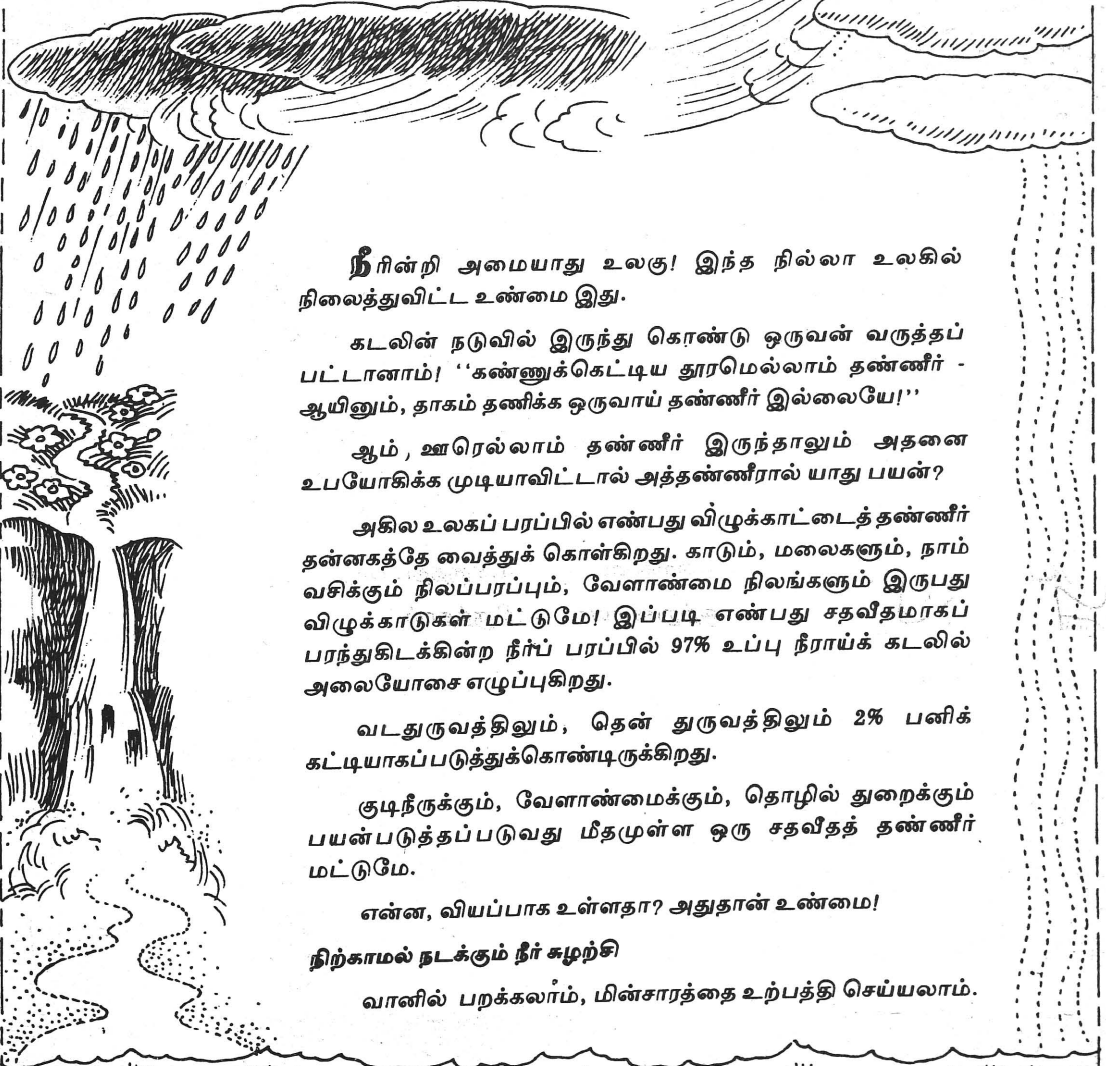 நீரின்றி அமையாது உலகு! இந்த நில்லா உலகில்
நிலைத்துவிட்ட உண்மை இது.
கடலின் நடுவில் இருந்து கொண்டு ஒருவன் வருத்தப்
பட்டானாம்! ‘‘கண்ணுக்கெட்டிய தூரமெல்லாம் தண்ணீர் -
ஆயினும், தாகம் தணிக்க ஒருவாய் தண்ணீர் இல்லையே!’’
ஆம், ஊரெல்லாம் தண்ணீர் இருந்தாலும் அதனை
உபயோகிக்க முடியாவிட்டால் அத்தண்ணீரால் யாது பயன்?
அகில உலகப் பரப்பில் எண்பது விழுக்காட்டைத் தண்ணீர்
தன்னகத்தே வைத்துக் கொள்கிறது. காடும், மலைகளும், நாம்
வசிக்கும் நிலப்பரப்பும், வேளாண்மை நிலங்களும் இருபது
விழுக்காடுகள் மட்டுமே! இப்படி எண்பது சதவீதமாகப்
பரந்துகிடக்கின்ற நீர்ப் பரப்பில் 97% உப்பு நீராய்க் கடலில்
அலையோசை எழுப்புகிறது.
வடதுருவத்திலும், தென் துருவத்திலும் 2% பனிக்
கட்டியாகப்படுத்துக்கொண்டிருக்கிறது.
குடிநீருக்கும், வேளாண்மைக்கும், தொழில் துறைக்கும்
பயன்படுத்தப்படுவது மீதமுள்ள ஒரு சதவீதத் தண்ணீர்
மட்டுமே.
என்ன, வியப்பாக உள்ளதா? அதுதான் உண்மை!
நிற்காமல் நடக்கும் நீர் சுழற்சி
வானில் பறக்கலாம், மின்சாரத்தை உற்பத்தி செய்யலாம்.